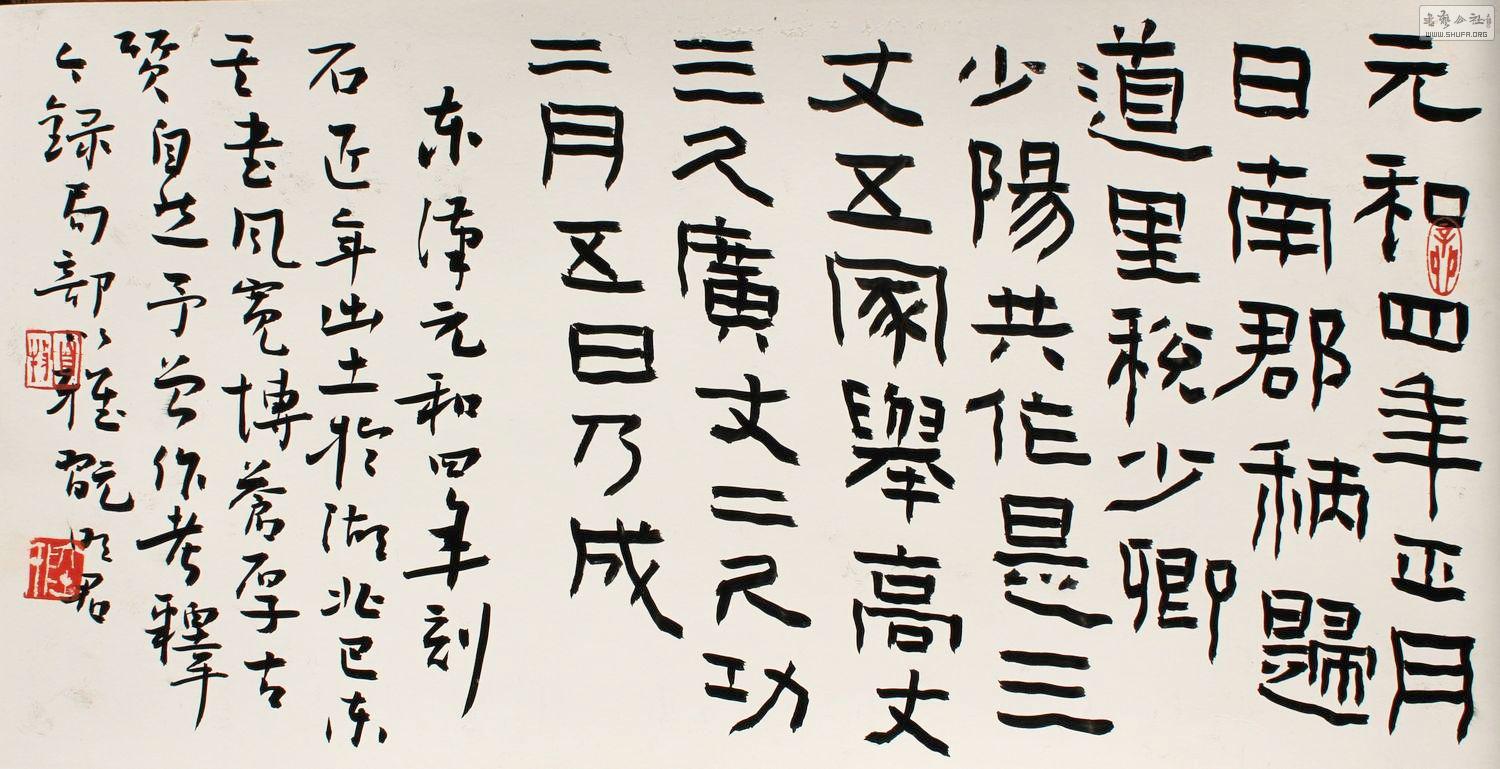 元和四年正月
日南郡柄歸
道里稅少卿
少陽共作是三
丈五冢舉高丈
三尺廣丈二尺功
二月五日乃成
东漢元和四年刻
石近年出土於湖北巴东
其書风宽博蒼厚古
質自然予曾作考釋
今録局部
書艺公社
www.SHUFA.ORG